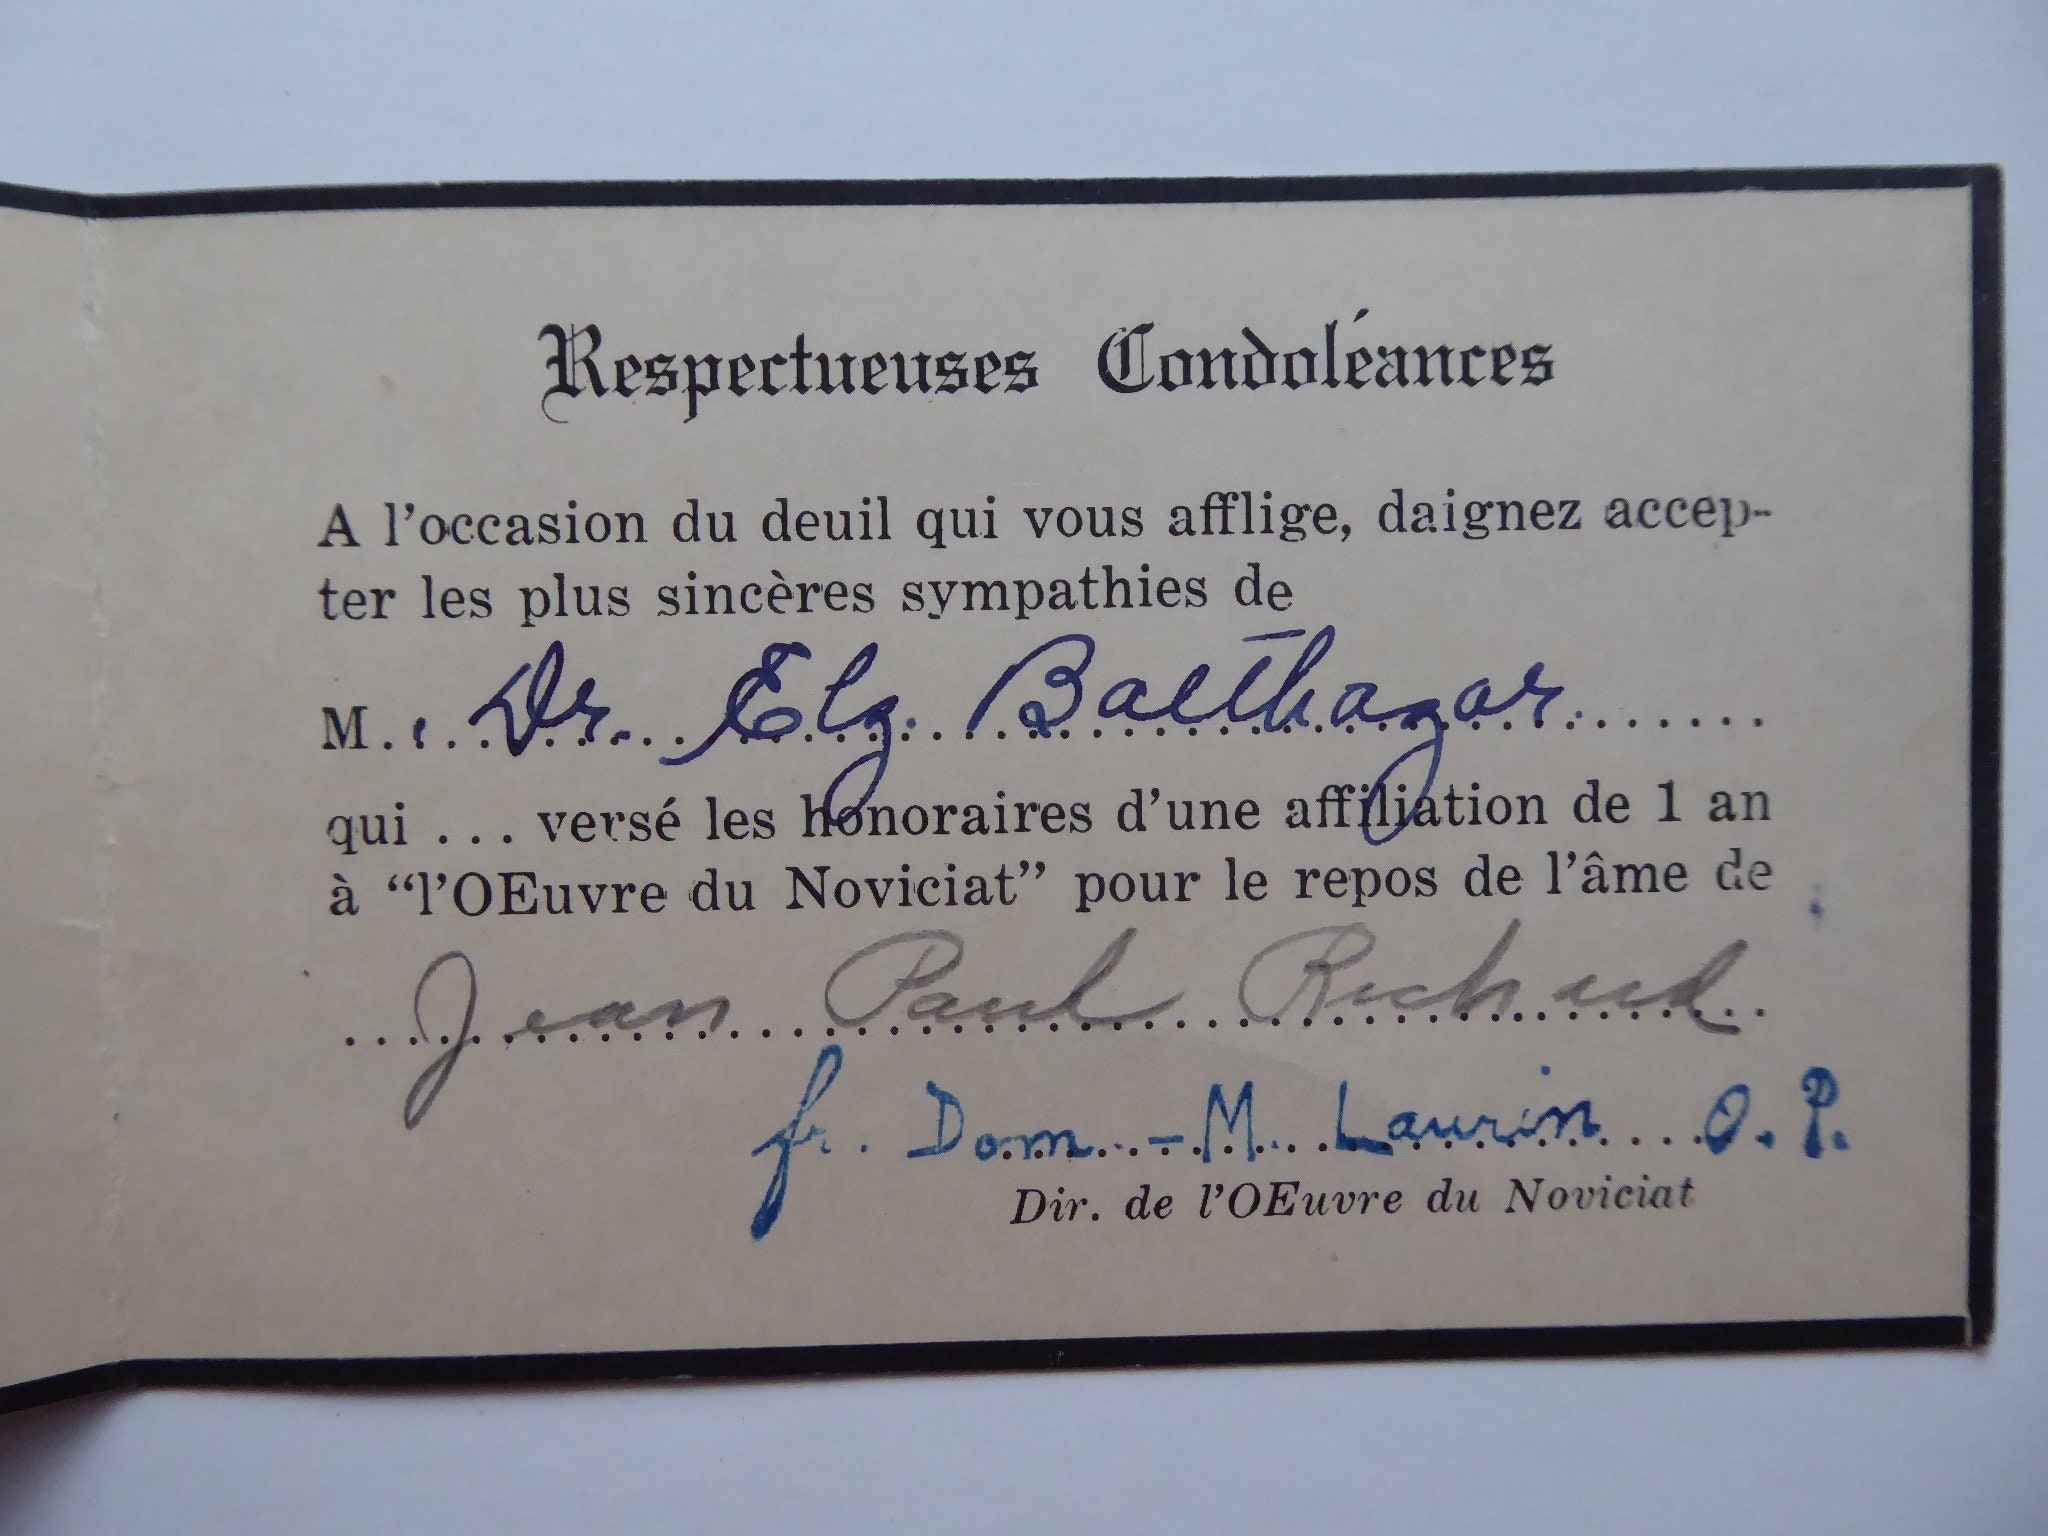 Respectueuses Condoléances
A l'occasion du deuil qui vous afflige, daignez accep-
ter les plus sincères sympathies de
M. . Dr. Elz. Balthazar
qui ... versé les honoraires d'une affiliation de 1 an
à “l'OEuvre du Noviciat” pour le repos de l'âme de
Jean Paul Richard
fr. Dom.-M. Laurin O.P.
Dir. de l'OEuvre du Noviciat